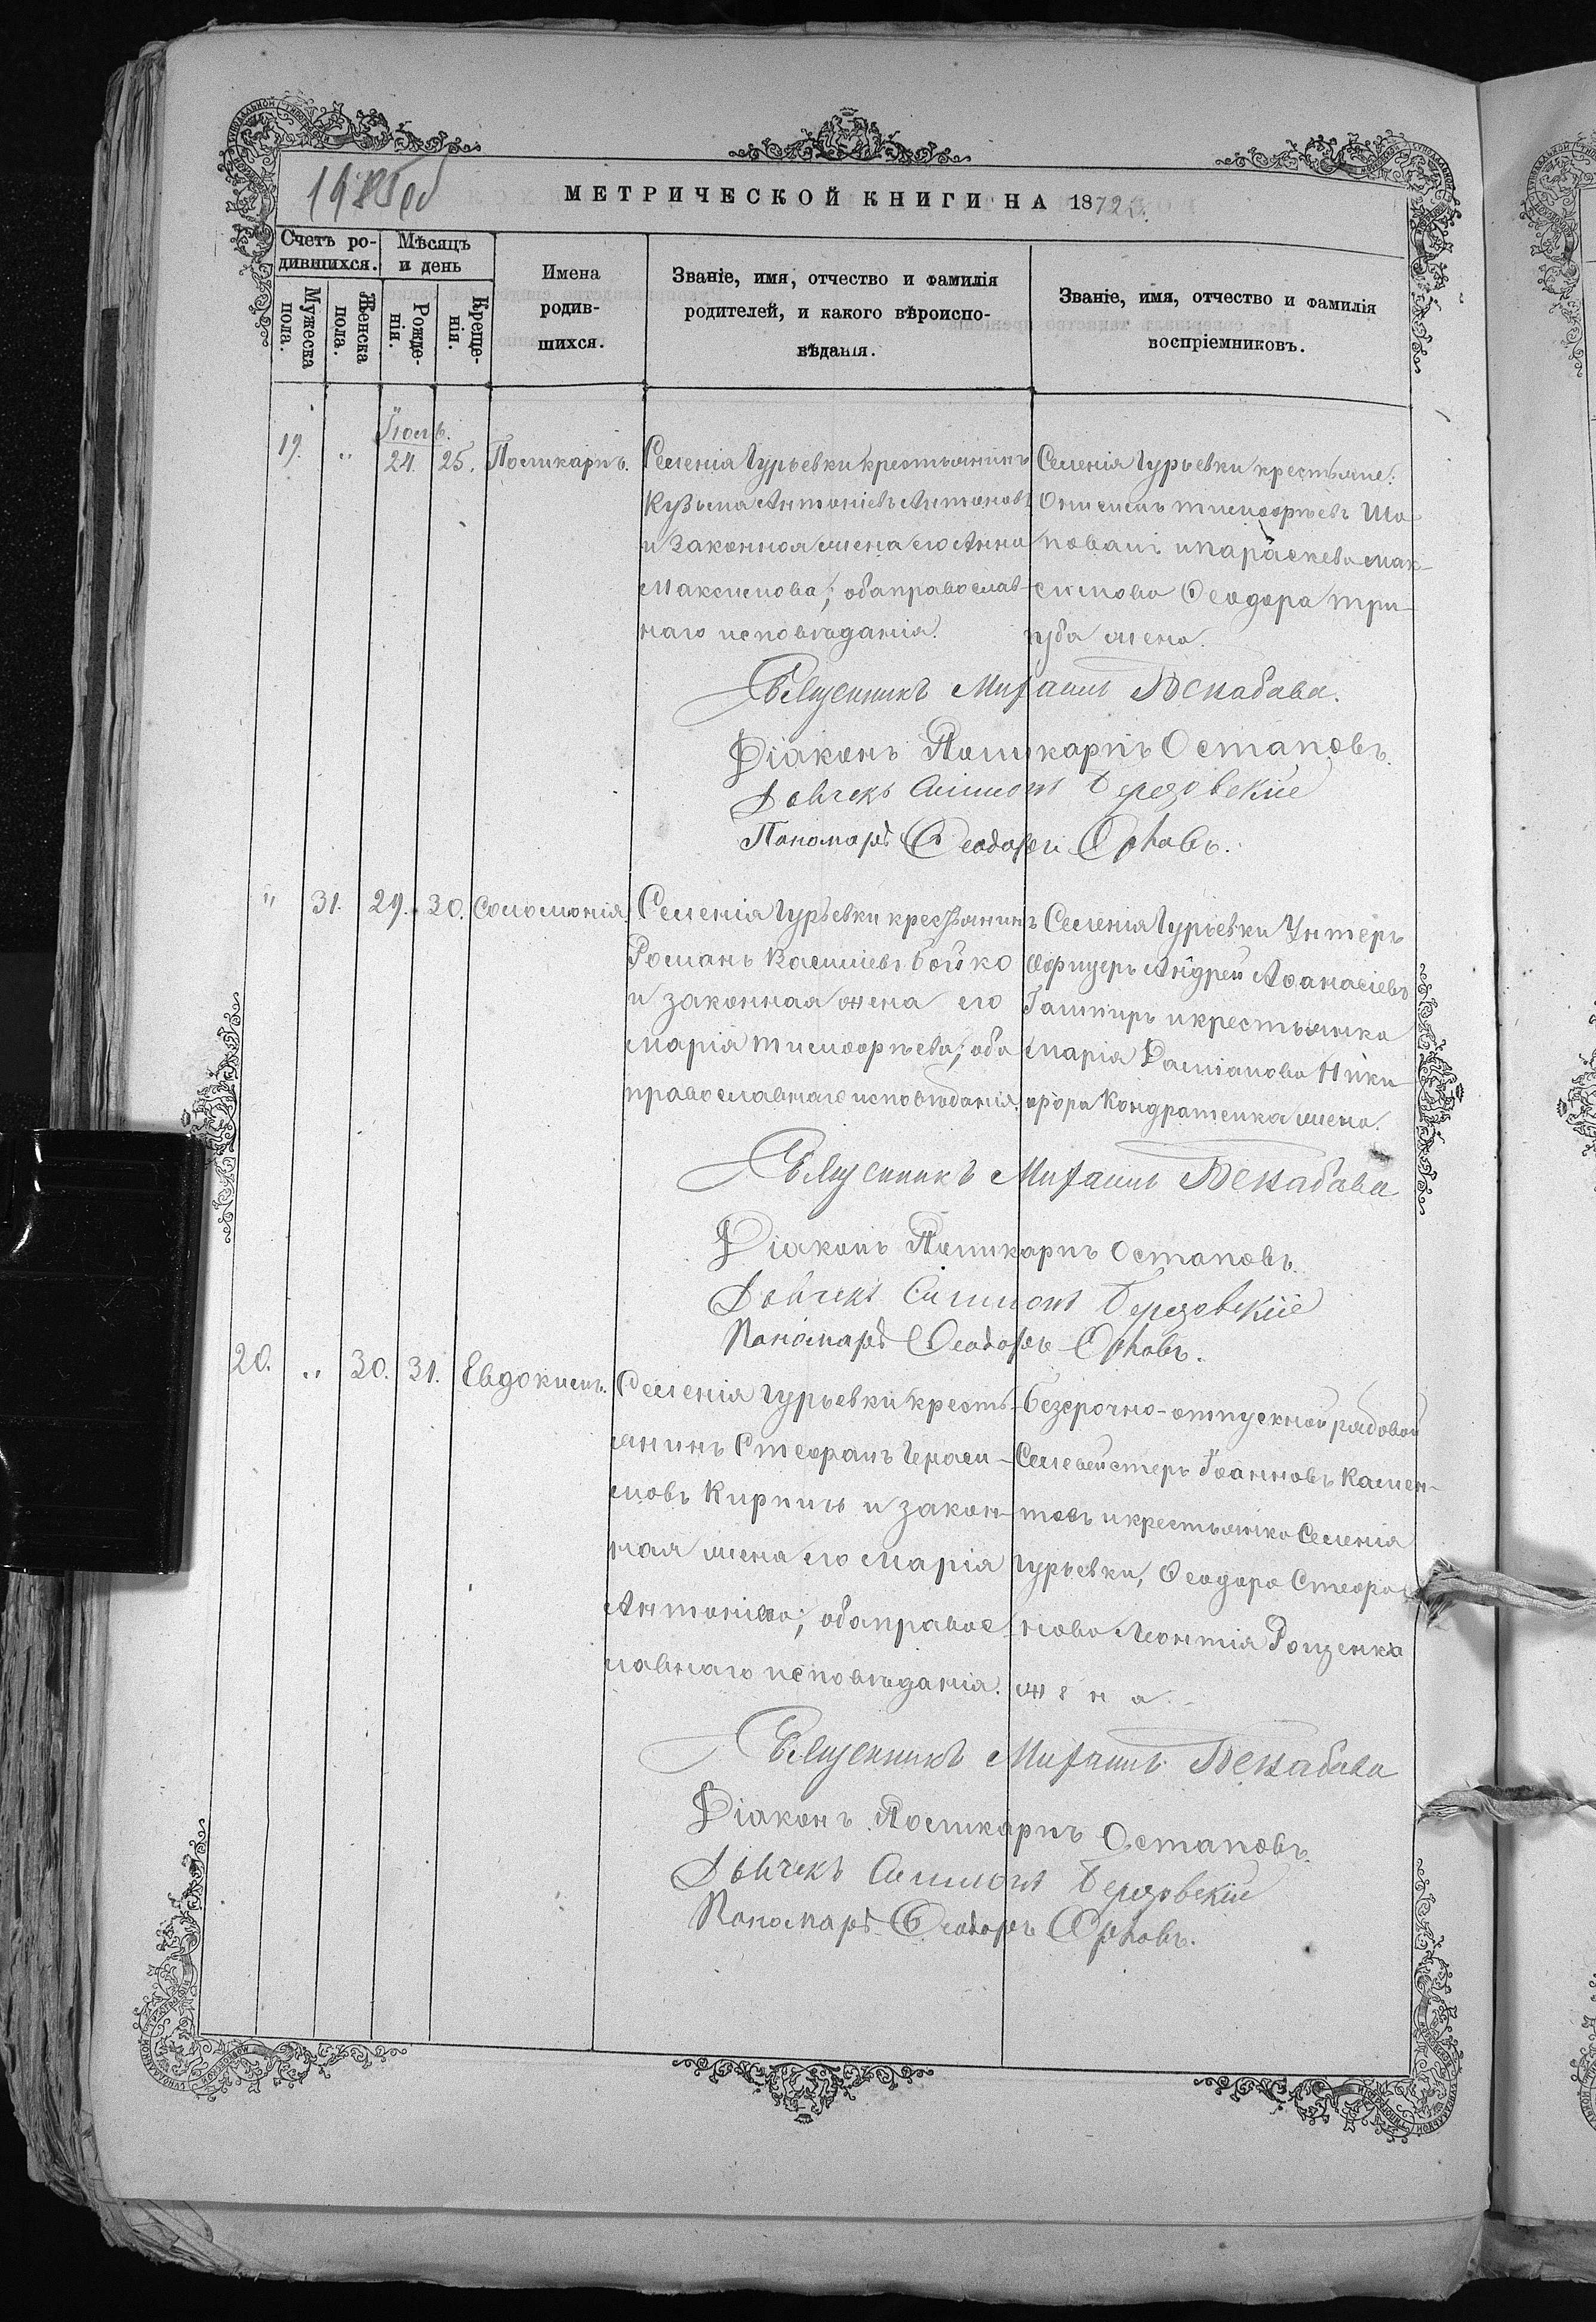 МЕТРИЧЕСКОЙ КНИГИ НА 1872
Счетъ ро-
дившихся.
Мѣсяцъ
и день
Мужеска
пола.
Женска
пола.
Рожде-
нія.
Креще-
нія.
Имена
родив-
шихся.
Званіе, имя, отчество и фамилія
родителей, и какого вѣроиспо-
вѣданія.
Званіе, имя, отчество и фамилія
воспріемниковъ.
19. " 24. 25. Поликарпъ.
Селенія Гурьевки крестьянинъ
Кузьма Антоніевъ Антоновъ
и законная жена его Анна
Максимова; оба православ-
наго исповѣданія.
Селенія Гурьевки крестьяне:
Онисимъ Тимофѣевъ Ша-
повалъ и Параскева Мак-
симова Ѳеодора Три-
губа жена.
Священникъ Михаилъ
Діаконъ Поликарпъ Остаповъ.
Дьячекъ Симеонъ Березовскій
Пономарь Ѳеодоръ Орловъ.
" 31. 29. 30. Соломонія.
Селенія Гурьевки крестьянинъ
Романъ Василіевъ Бойко
и законная жена его
Марія Тимофѣева; оба
православнаго исповѣданія.
Селенія Гурьевки Унтеръ
Офицеръ Андрей Аѳанасіевъ
и крестьянка
Марія Даміанова Ники-
фора Кондратенка жена.
Священникъ Михаилъ
Діаконъ Поликарпъ Остаповъ.
Дьячекъ Симеонъ Березовскій
Пономарь Ѳеодоръ Орловъ.
20. " 30. 31. Евдокимъ.
Селенія Гурьевки кресть-
янинъ Стефанъ Гераси-
мовъ и закон-
ная жена его Марія
Антоніева; оба правос-
лавнаго исповѣданія.
Безсрочно-отпускной рядовой
Селевейстеръ Іоанновъ Камен-
и крестьянка Селенія
Гурьевки, Ѳеодора Стефа-
нова Леонтія Рощенка
жена.
Священникъ Михаилъ
Діаконъ Поликарпъ Остаповъ.
Дьячекъ Симеонъ Березовскій
Пономарь Ѳеодоръ Орловъ.